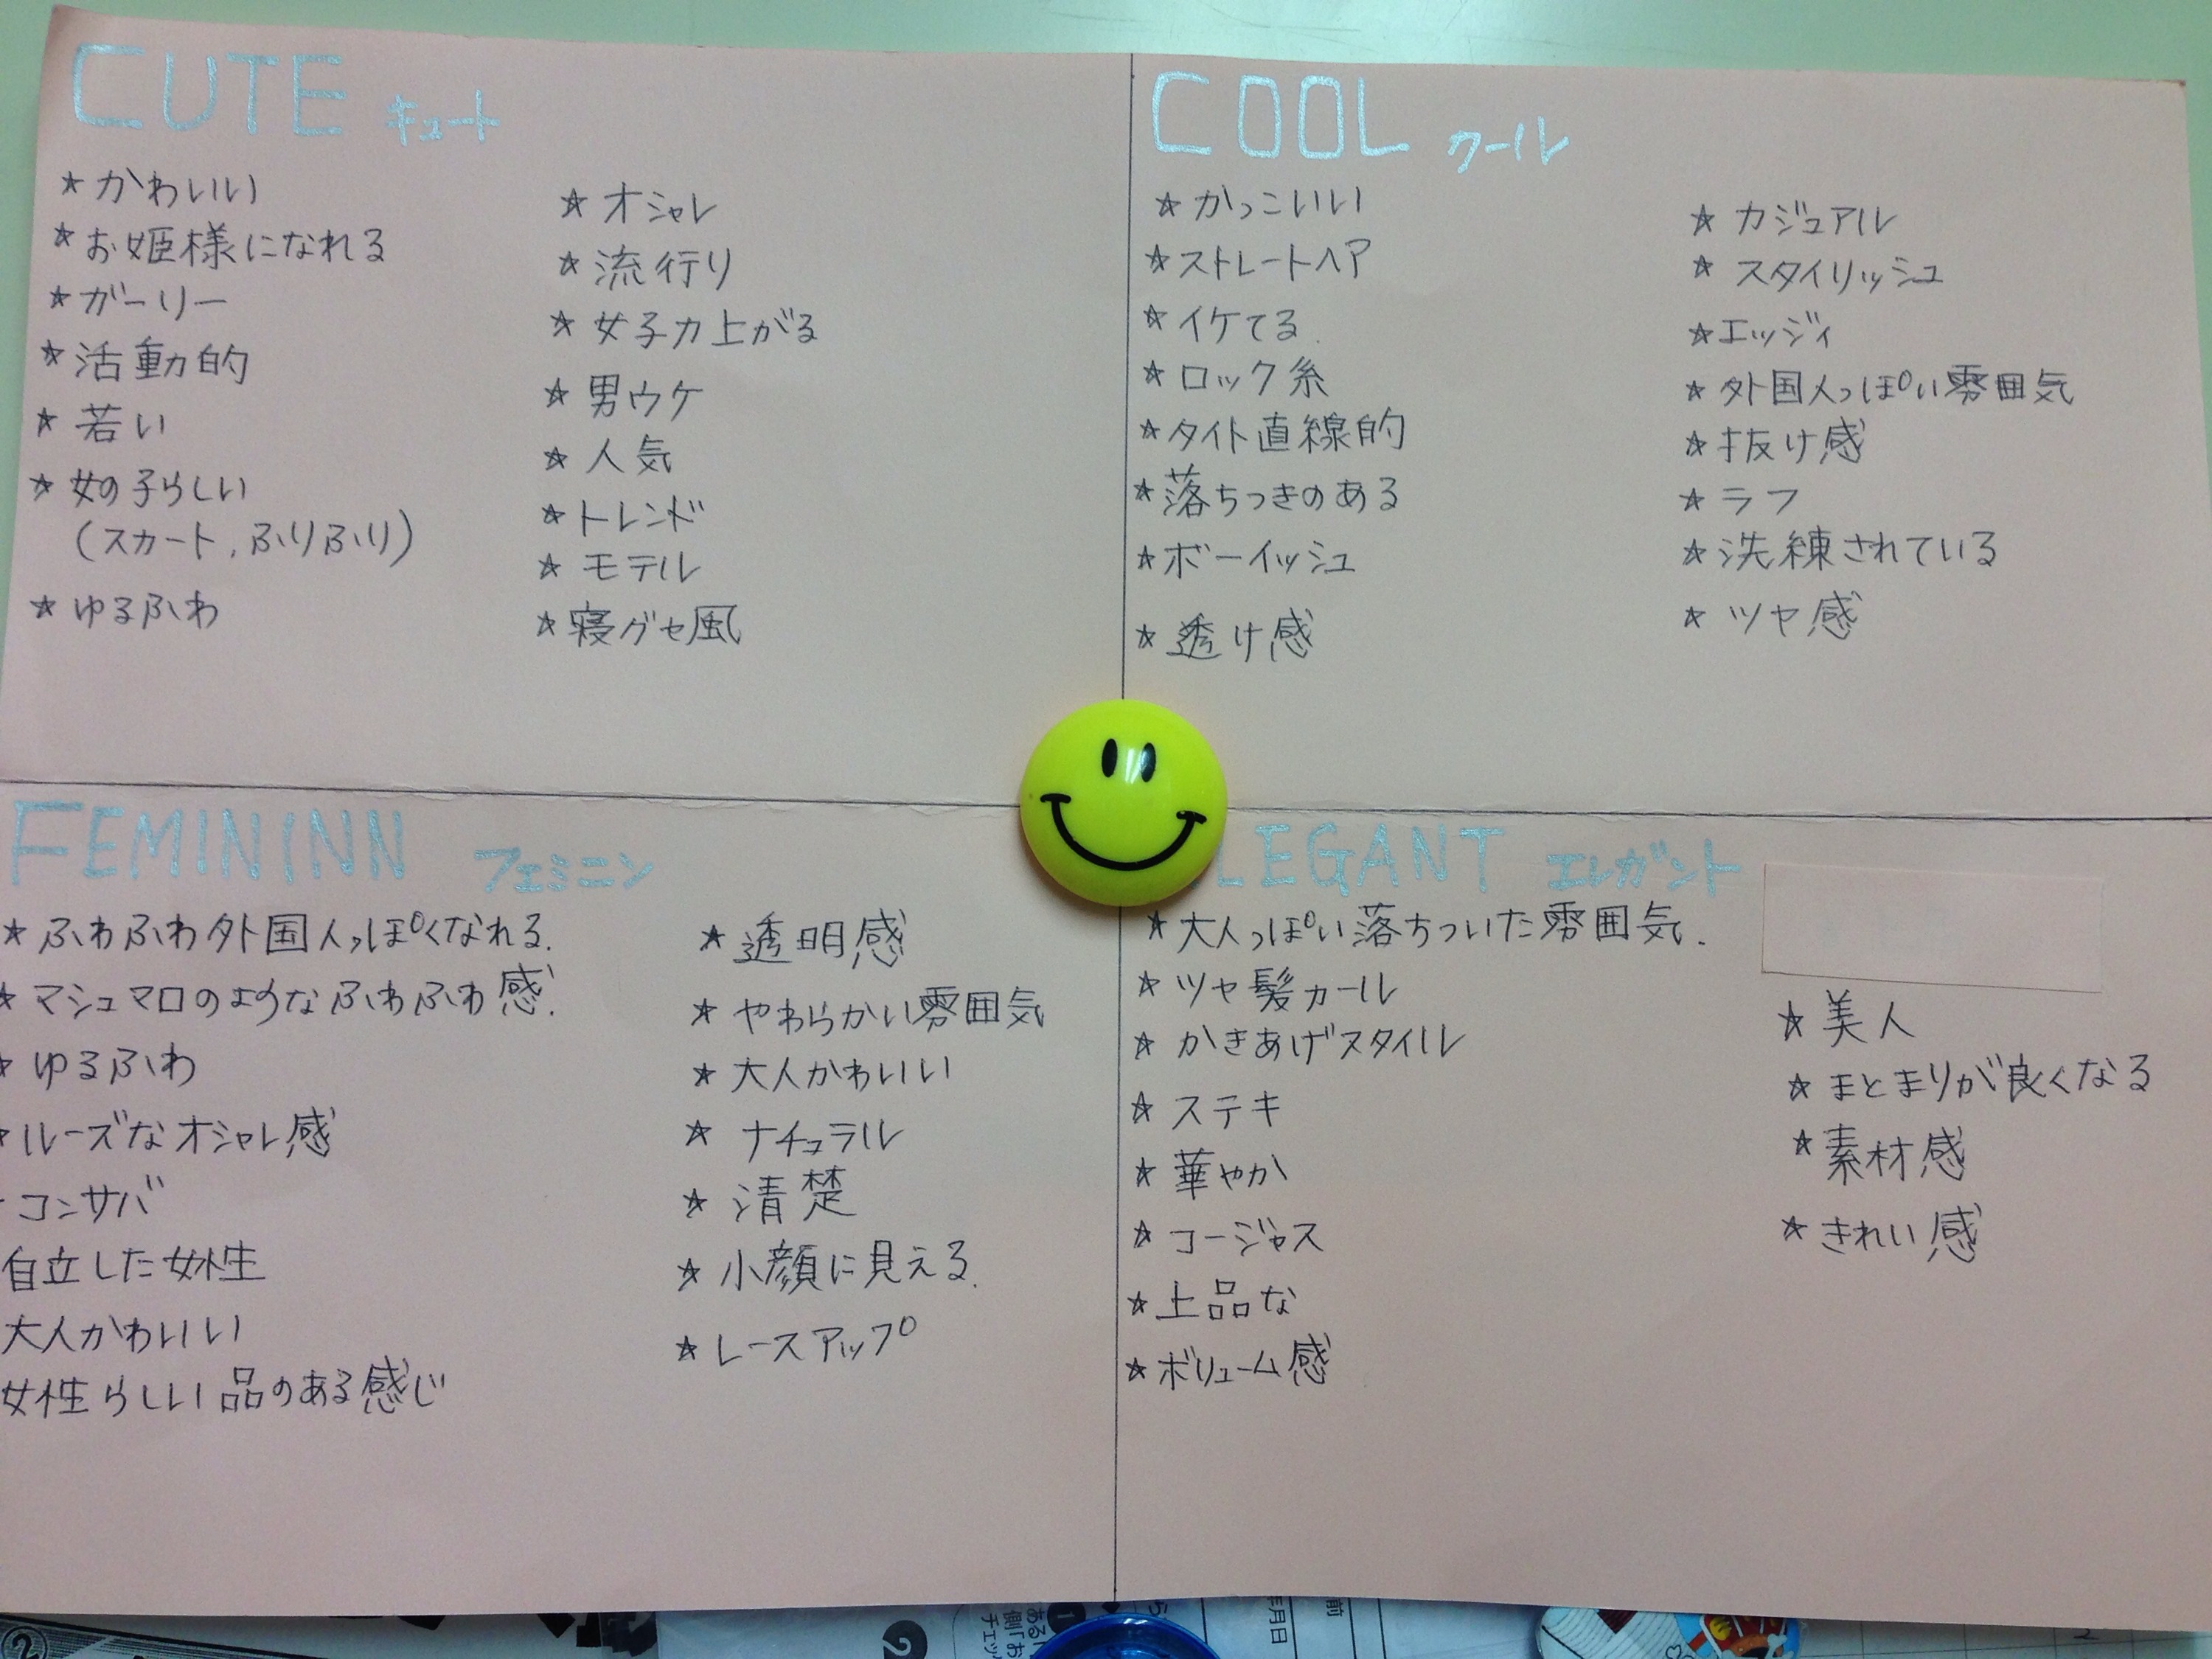 CUTE キュート
★かわいい
★お姫様になれる
★ガーリー
★活動的
★若い
★女の子らしい
(スカート,ふりふり)
★ゆるふわ
★オシャレ
★流行り
★女子力上がる
★男ウケ
★人気
★トレンド
★モテル
★寝グセ風
COOL クール
★かっこいい
★ストレートヘア
★イケてる.
★ロック糸
★タイト直線的
★落ちつきのある
★ボーイッシュ
★透け感
★カジュアル
★スタイリッシュ
★エッジィ
★外国人っぽい雰囲気
★抜け感
★ラフ
★洗練されている
★ツヤ感
FEMININN フェミニン
★ふわふわ外国人っぽくなれる.
★マシュマロのようなふわふわ感.
★ゆるふわ
★ルーズなオシャレ感
コンサバ
自立した女性
大人かわいい
女性らしい品のある感じ
★透明感
★やわらかい雰囲気
★大人かわいい
★ナチュラル
★清楚
★小顔に見える.
★レースアップ
LEGANT エレガント
★大人っぽい落ちついた雰囲気.
★ツヤ髪カール
★かきあげスタイル
★ステキ
★華やか
★コージャス
★上品な
★ボリューム感
★美人
★まとまりが良くなる
★素材感
★きれい感
②
2
1
ある
側「お
チェッ
年月日
前